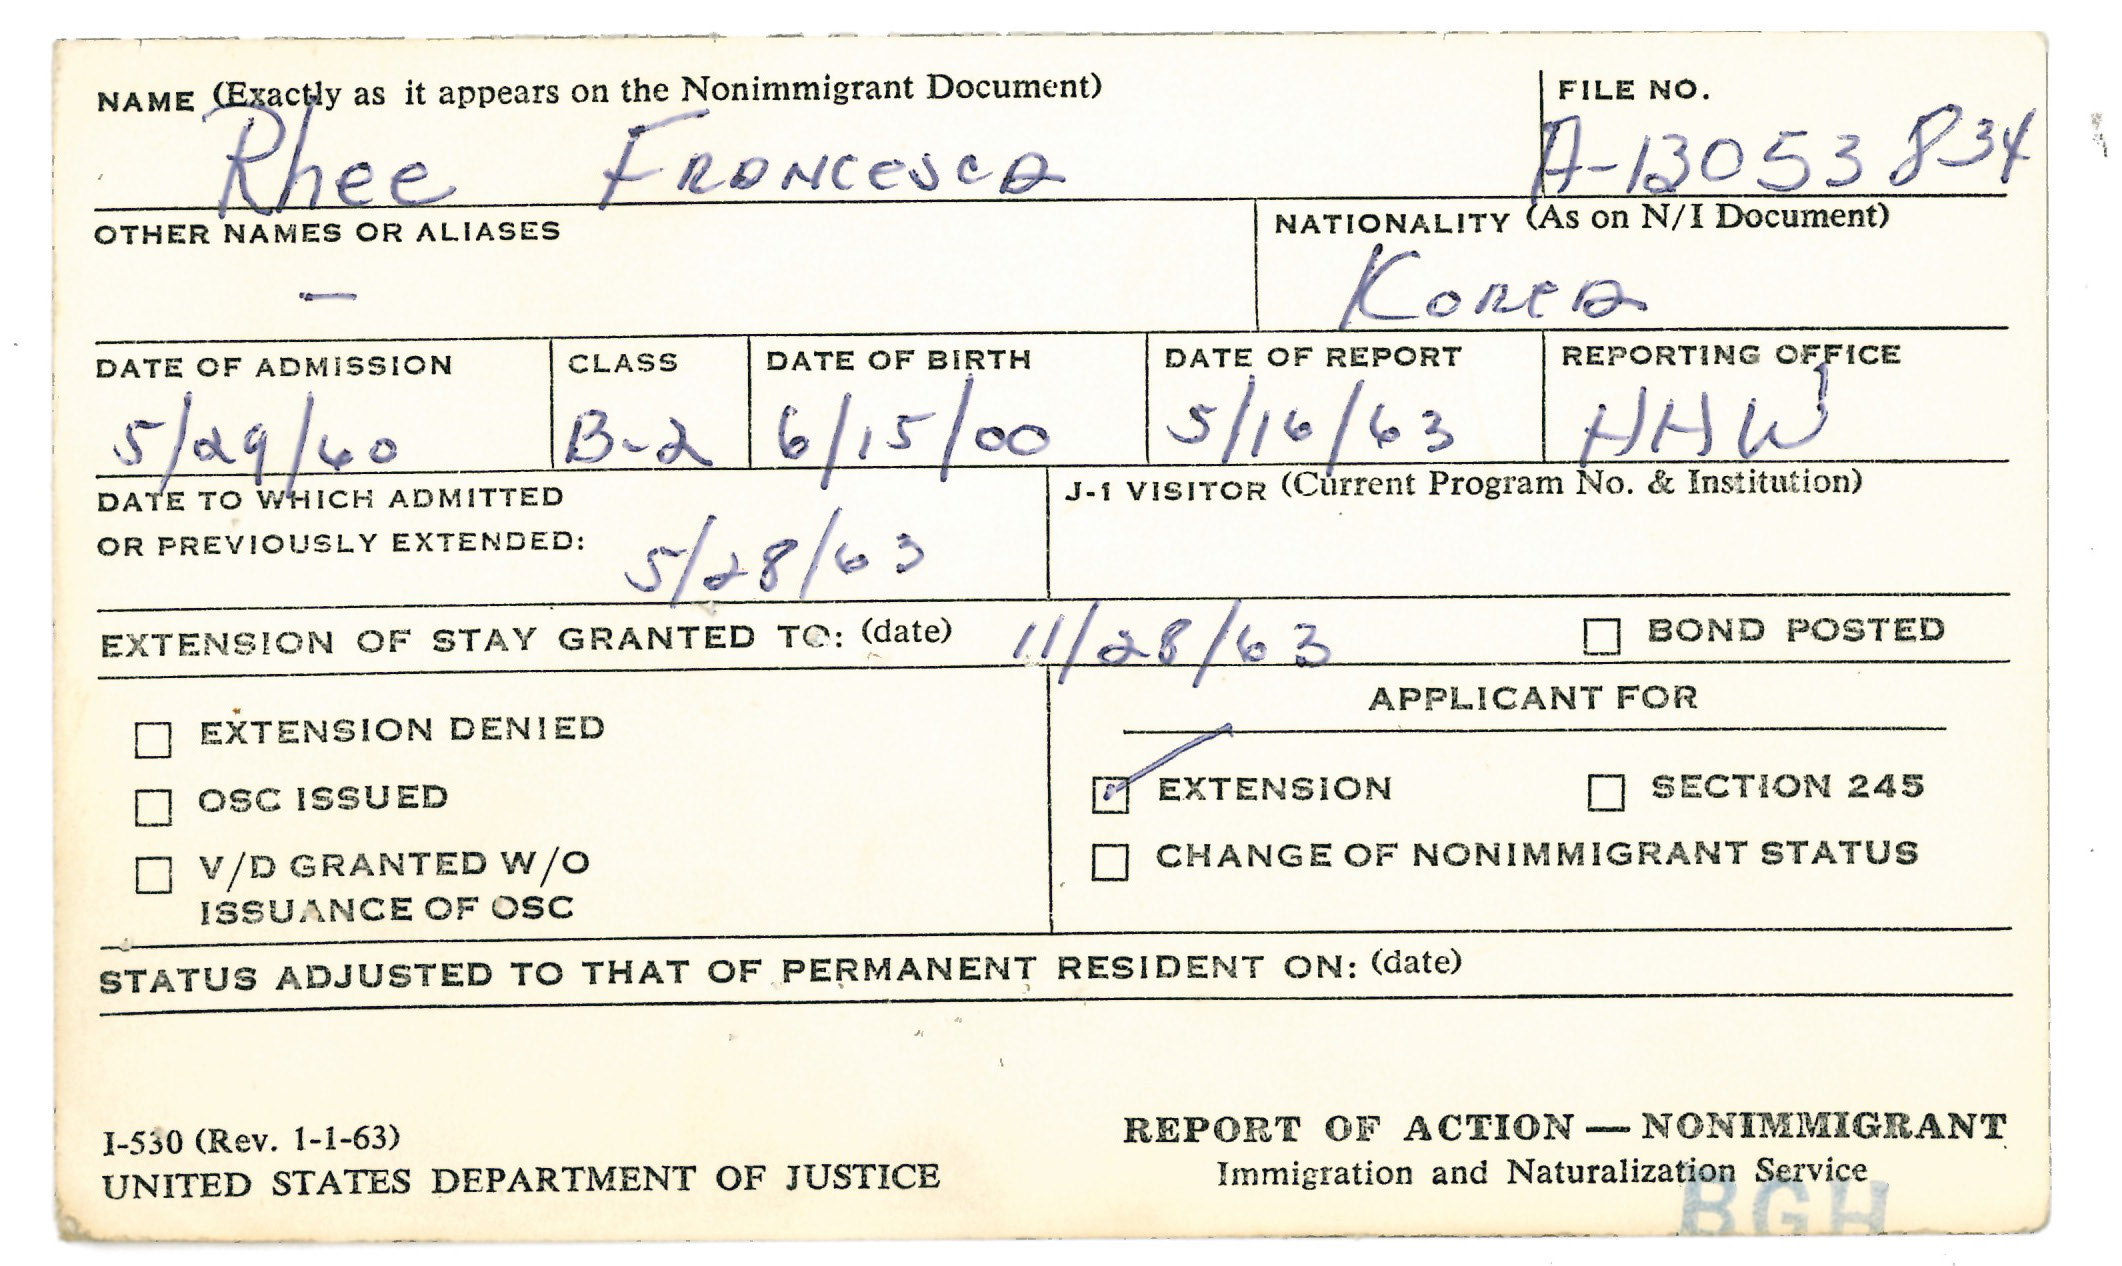 NAME (Exactly as it appears on the Nonimmigrant Document)
Rhee Francesca
FILE NO.
A-13053834
OTHER NAMES OR ALIASES
—
NATIONALITY (As on N/I Document)
Korea
DATE OF ADMISSION
5/29/60
CLASS
B-2
DATE OF BIRTH
6/15/00
DATE OF REPORT
5/16/63
REPORTING OFFICE
HHW
DATE TO WHICH ADMITTED
OR PREVIOUSLY EXTENDED: 5/28/63
J-1 VISITOR (Current Program No. & Institution)
EXTENSION OF STAY GRANTED TO: (date) 11/28/63
BOND POSTED
EXTENSION DENIED
OSC ISSUED
V/D GRANTED W/O
ISSUANCE OF OSC
APPLICANT FOR
EXTENSION
SECTION 245
CHANGE OF NONIMMIGRANT STATUS
STATUS ADJUSTED TO THAT OF PERMANENT RESIDENT ON: (date)
I-530 (Rev. 1-1-63)
UNITED STATES DEPARTMENT OF JUSTICE
REPORT OF ACTION — NONIMMIGRANT
Immigration and Naturalization Service
BGH